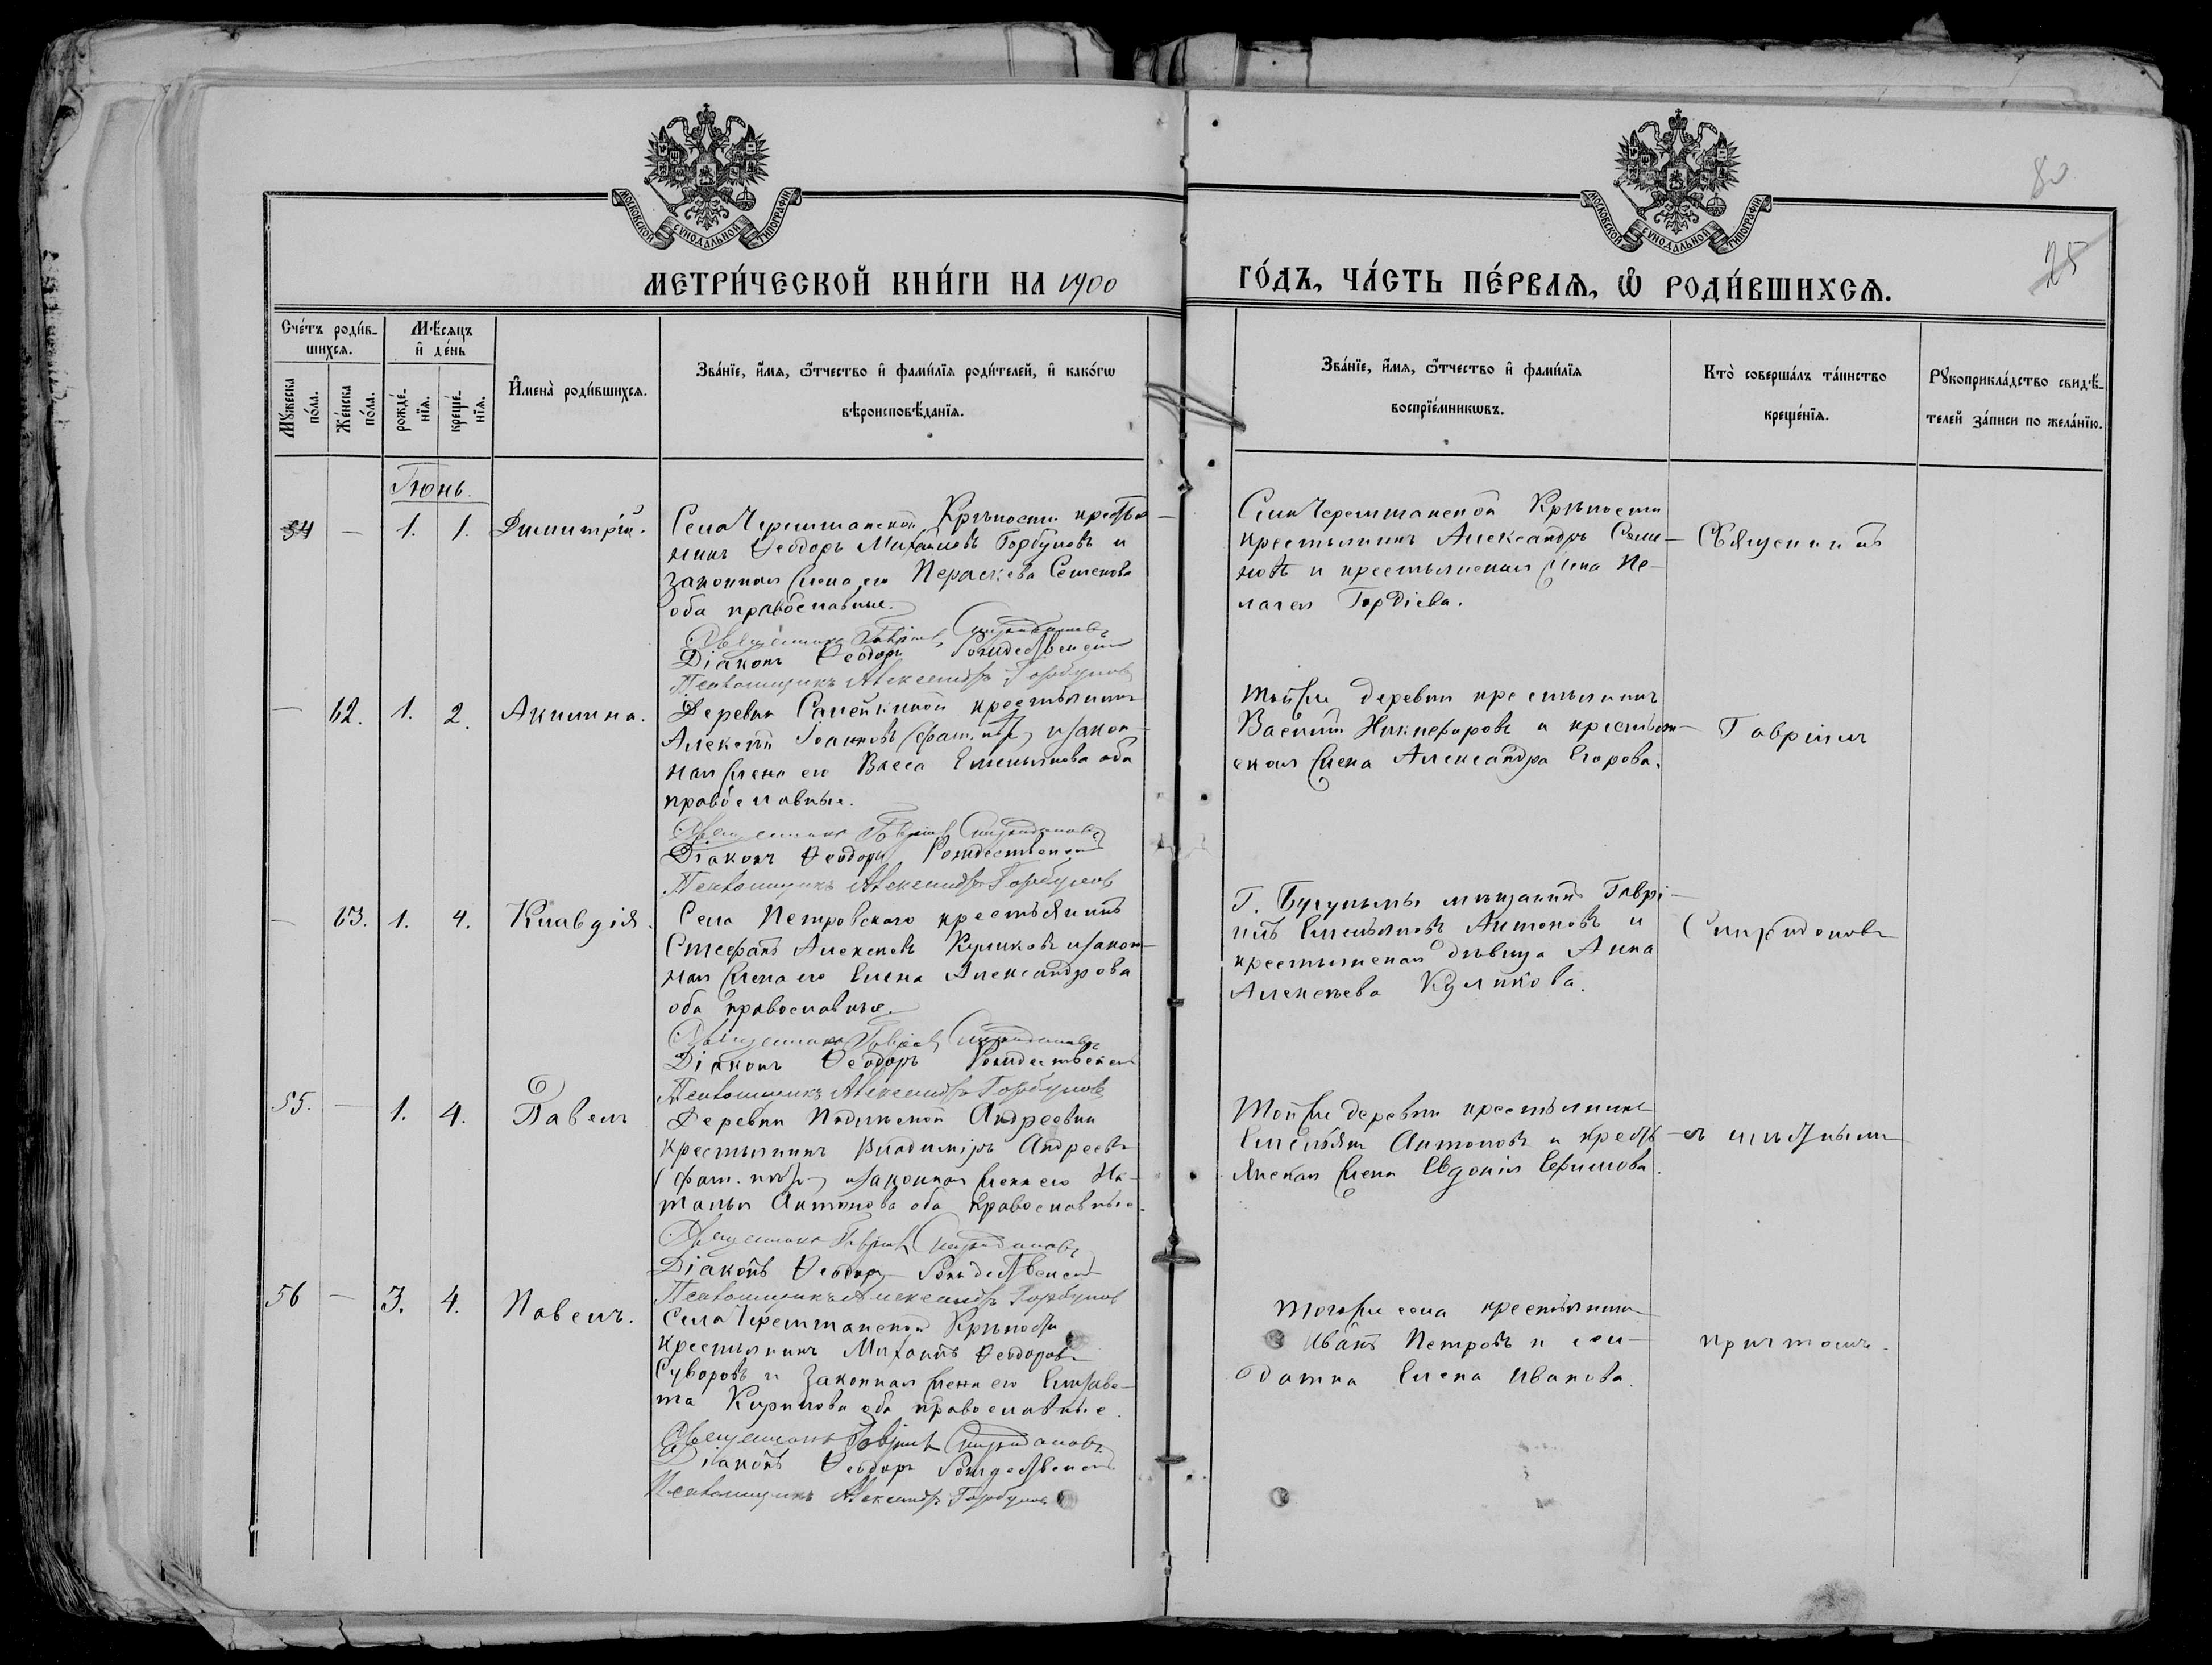 80
25
МОСКОВСКОЙ СѴНОДАЛЬНОЙ ТИПОГРАФІИ
МОСКОВСКОЙ СѴНОДАЛЬНОЙ ТИПОГРАФІИ
МЕТРИ́ЧЕСКОЙ КНИ́ГИ НА 1900
ГО́ДЪ, ЧА́СТЬ ПЕ́РВАѦ, Ѽ РОДИ́ВШИХСѦ.
Сче́тъ роди́в-
шихсѧ.
Мꙋжеска по́ла.
Же́нска по́ла.
Мѣ́сѧцъ
и҆ де́нь
рожде́-
нїѧ.
креще́-
нїѧ.
И҆мена̀ роди́вшихсѧ.
Зва́нїе, и҆́мѧ, ѻ҆́тчество и҆ фами́лїѧ роди́телей, и҆ како́гѡ
вѣроисповѣ́данїѧ.
Зва́нїе, и҆́мѧ, ѻ҆́тчество и҆ фами́лїѧ
воспрїе́мникѡвъ.
Кто̀ соверша́лъ та́инство
креще́нїѧ.
Рꙋкоприкла́дство свидѣ́-
телей за́писи по жела́нїю.
Іюнь.
54 — 1. 1. Димитрій.
Села Черемшанской Крѣпости крестья-
нинъ Ѳеодоръ Михаиловъ Горбуновъ и
законная жена его Параскева Семенова
оба православные.
Священникъ Гавріилъ Спиридоновъ
Діаконъ Ѳеодоръ Рождественскій
Псаломщикъ Александръ Горбуновъ
Села Черемшанской Крѣпости
крестьянинъ Александръ Семе-
новъ и крестьянская жена Пе-
лагея Гордіева.
Священникъ
— 62. 1. 2. Акилина.
Деревни крестьянинъ
Алексѣй Іоанновъ (фам. нѣтъ) и закон-
ная жена его Васса Емельянова оба
православные.
Священникъ Гавріилъ Спиридоновъ
Діаконъ Ѳеодоръ Рождественскій
Псаломщикъ Александръ Горбуновъ
Той же деревни крестьянинъ
Василій Никифоровъ и крестьян-
ская жена Александра Егорова.
Гавріилъ
— 63. 1. 4. Клавдія.
Села Петровскаго крестьянинъ
Стефанъ Алексѣевъ Куликовъ и закон-
ная жена его Елена Александрова
оба православные.
Священникъ Гавріилъ Спиридоновъ
Діаконъ Ѳеодоръ Рождественскій
Псаломщикъ Александръ Горбуновъ
Г. Бугульмы мѣщанинъ Гаврі-
илъ Емельяновъ Антоновъ и
крестьянская дѣвица Анна
Алексѣева Куликова.
Спиридоновъ
55. — 1. 4. Павелъ
Деревни Андреевки
крестьянинъ Владиміръ Андреевъ
(фам. нѣтъ) и законная жена его На-
талья Антонова оба православные.
Священникъ Гавріилъ Спиридоновъ
Діаконъ Ѳеодоръ Рождественскій
Псаломщикъ Александръ Горбуновъ
Той же деревни крестьянинъ
Емельянъ Антоновъ и кресть-
янская жена Евдокія Ефимова.
съ мѣстнымъ
56 — 3. 4. Павелъ.
Села Черемшанской Крѣпости
крестьянинъ Михаилъ Ѳеодоровъ
Суворовъ и законная жена его Елизаве-
та Кирилова оба православные.
Священникъ Гавріилъ Спиридоновъ
Діаконъ Ѳеодоръ Рождественскій
Псаломщикъ Александръ Горбуновъ
Того же села крестьянинъ
Иванъ Петровъ и сол-
датка Елена Иванова.
причтомъ.